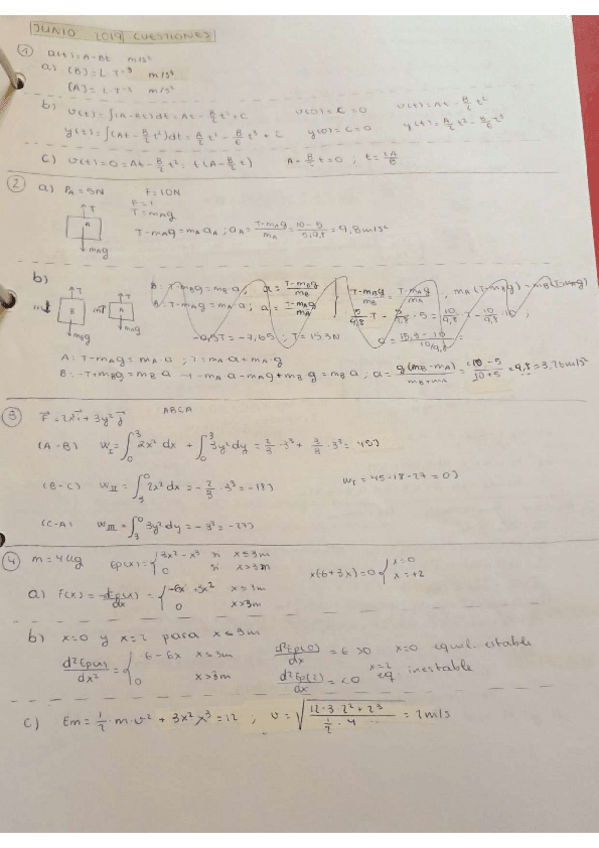 JUNIO 2019 CUESTIONES
① a(t)=A-Bt m/s²
a) [B]=L·T⁻³ m/s³
[A]=L·T⁻²
b) v(t)=∫(A-Bt)dt=At-B/2 t²+C v(0)=C=0 v(t)=At-B/2 t²
y(t)=∫(At-B/2 t²)dt=A/2 t²-B/6 t³+C y(0)=C=0 y(t)=A/2 t²-B/6 t³
c) v(t)=0=At-B/2 t²; t(A-B/2 t) A-B/2 t=0; t=2A/B
② a) P_A=5N F=10N
T
A
m_A g
T-m_A g=m_A a_A; a_A=(T-m_A g)/m_A=(10-5)/(5/9,8)=9,8m/s²
b) T T
B A
m_B g m_A g
B: T-m_B g=m_B a; a=(T-m_B g)/m_B
A: T-m_A g=m_A a; a=(T-m_A g)/m_A
A: T-m_A g=m_A a; T=m_A a+m_A g
B: -T+m_B g=m_B a → -m_A a-m_A g+m_B g=m_B a; a=g(m_B-m_A)/(m_B+m_A)=(10-5)/(10+5)·9,8=3,26m/s²
③ ABCA
(A-B) W_I=∫₀³2x²dx+∫₀³3y²dy=2/3·3³+3/3·3³=45J
(B-C) W_II=∫₃⁰2x²dx=-2/3·3³=-18J W_T=45-18-27=0J
(C-A) W_III=∫₃⁰3y²dy=-3³=-27J
④ m=4kg Ep(x)={3x²-x³ si x≤3m
0 si x>3m
x(6+3x)=0 {x=0
x=+2
a) F(x)=-dEp(x)/dx={-6x+3x² x≤3m
0 x>3m
b) x=0 y x=2 para x≤3m
d²Ep(x)/dx²={6-6x x≤3m
0 x>3m
d²Ep(0)/dx=6>0 x=0 equil. estable
d²Ep(2)/dx=<0 x=2 eq. inestable
c) Em=1/2·m·v²+3x²x³=12; v=√((12·3·2²+2³)/(1/2·4))=2m/s